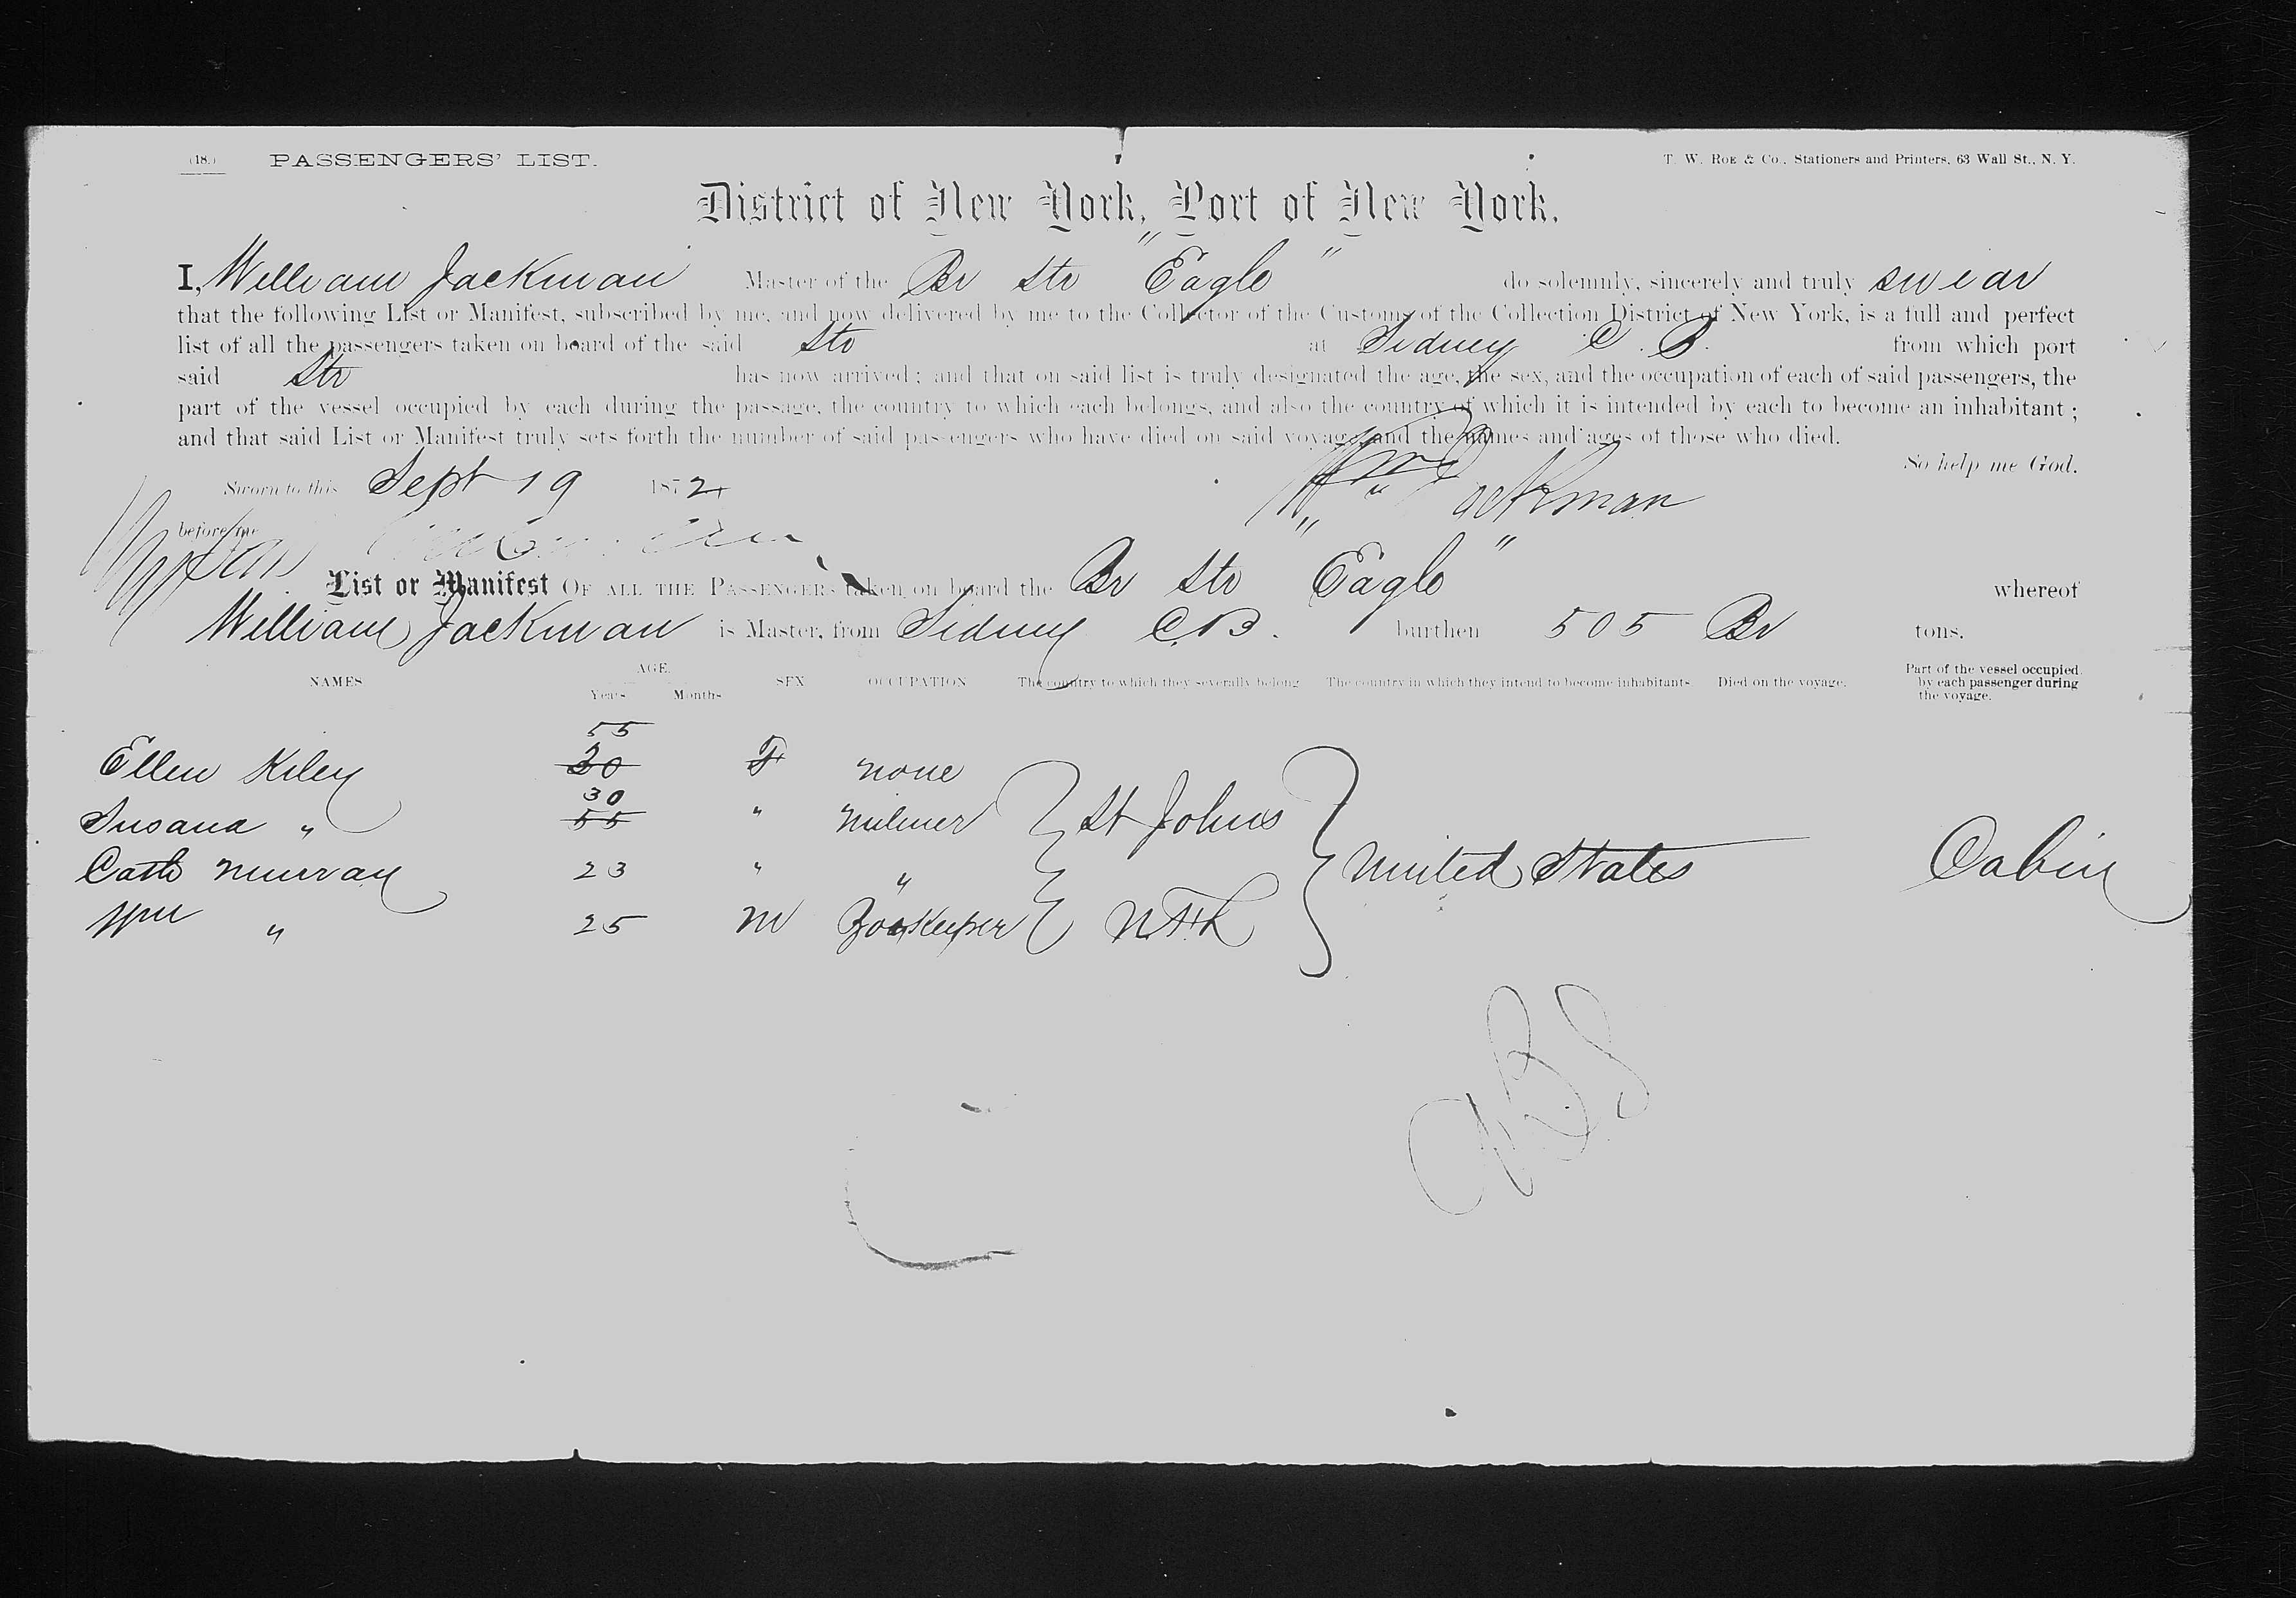 (18.) PASSENGERS' LIST. T. W. ROE & Co., Stationers and Printers, 63 Wall St., N. Y.
District of New York, Port of New York.
I, William Jackman Master of the Br Str "Eagle" do solemnly, sincerely and truly swear
that the following List or Manifest, subscribed by me, and now delivered by me to the Collector of the Customs of the Collection District of New York, is a full and perfect
list of all the passengers taken on board of the said Str at Sidney C. B. from which port
said Str has now arrived; and that on said list is truly designated the age, the sex, and the occupation of each of said passengers, the
part of the vessel occupied by each during the passage, the country to which each belongs, and also the country of which it is intended by each to become an inhabitant;
and that said List or Manifest truly sets forth the number of said passengers who have died on said voyage, and the names and ages of those who died.
So help me God.
Sworn to this Sept 19 1872 Wm Jackman
before me
List or Manifest OF ALL THE PASSENGERS taken on board the Br Str "Eagle" whereof
William Jackman is Master, from Sidney C.B. burthen 505 Br tons.
NAMES AGE. Years Months SEX OCCUPATION The country to which they severally belong The country in which they intend to become inhabitants Died on the voyage. Part of the vessel occupied by each passenger during the voyage.
55
Ellen Kiley 30 F none
30
Susana " 55 " Miliner St Johns
Cath Murray 23 " " United States Cabin
Wm " 25 M N.F.L